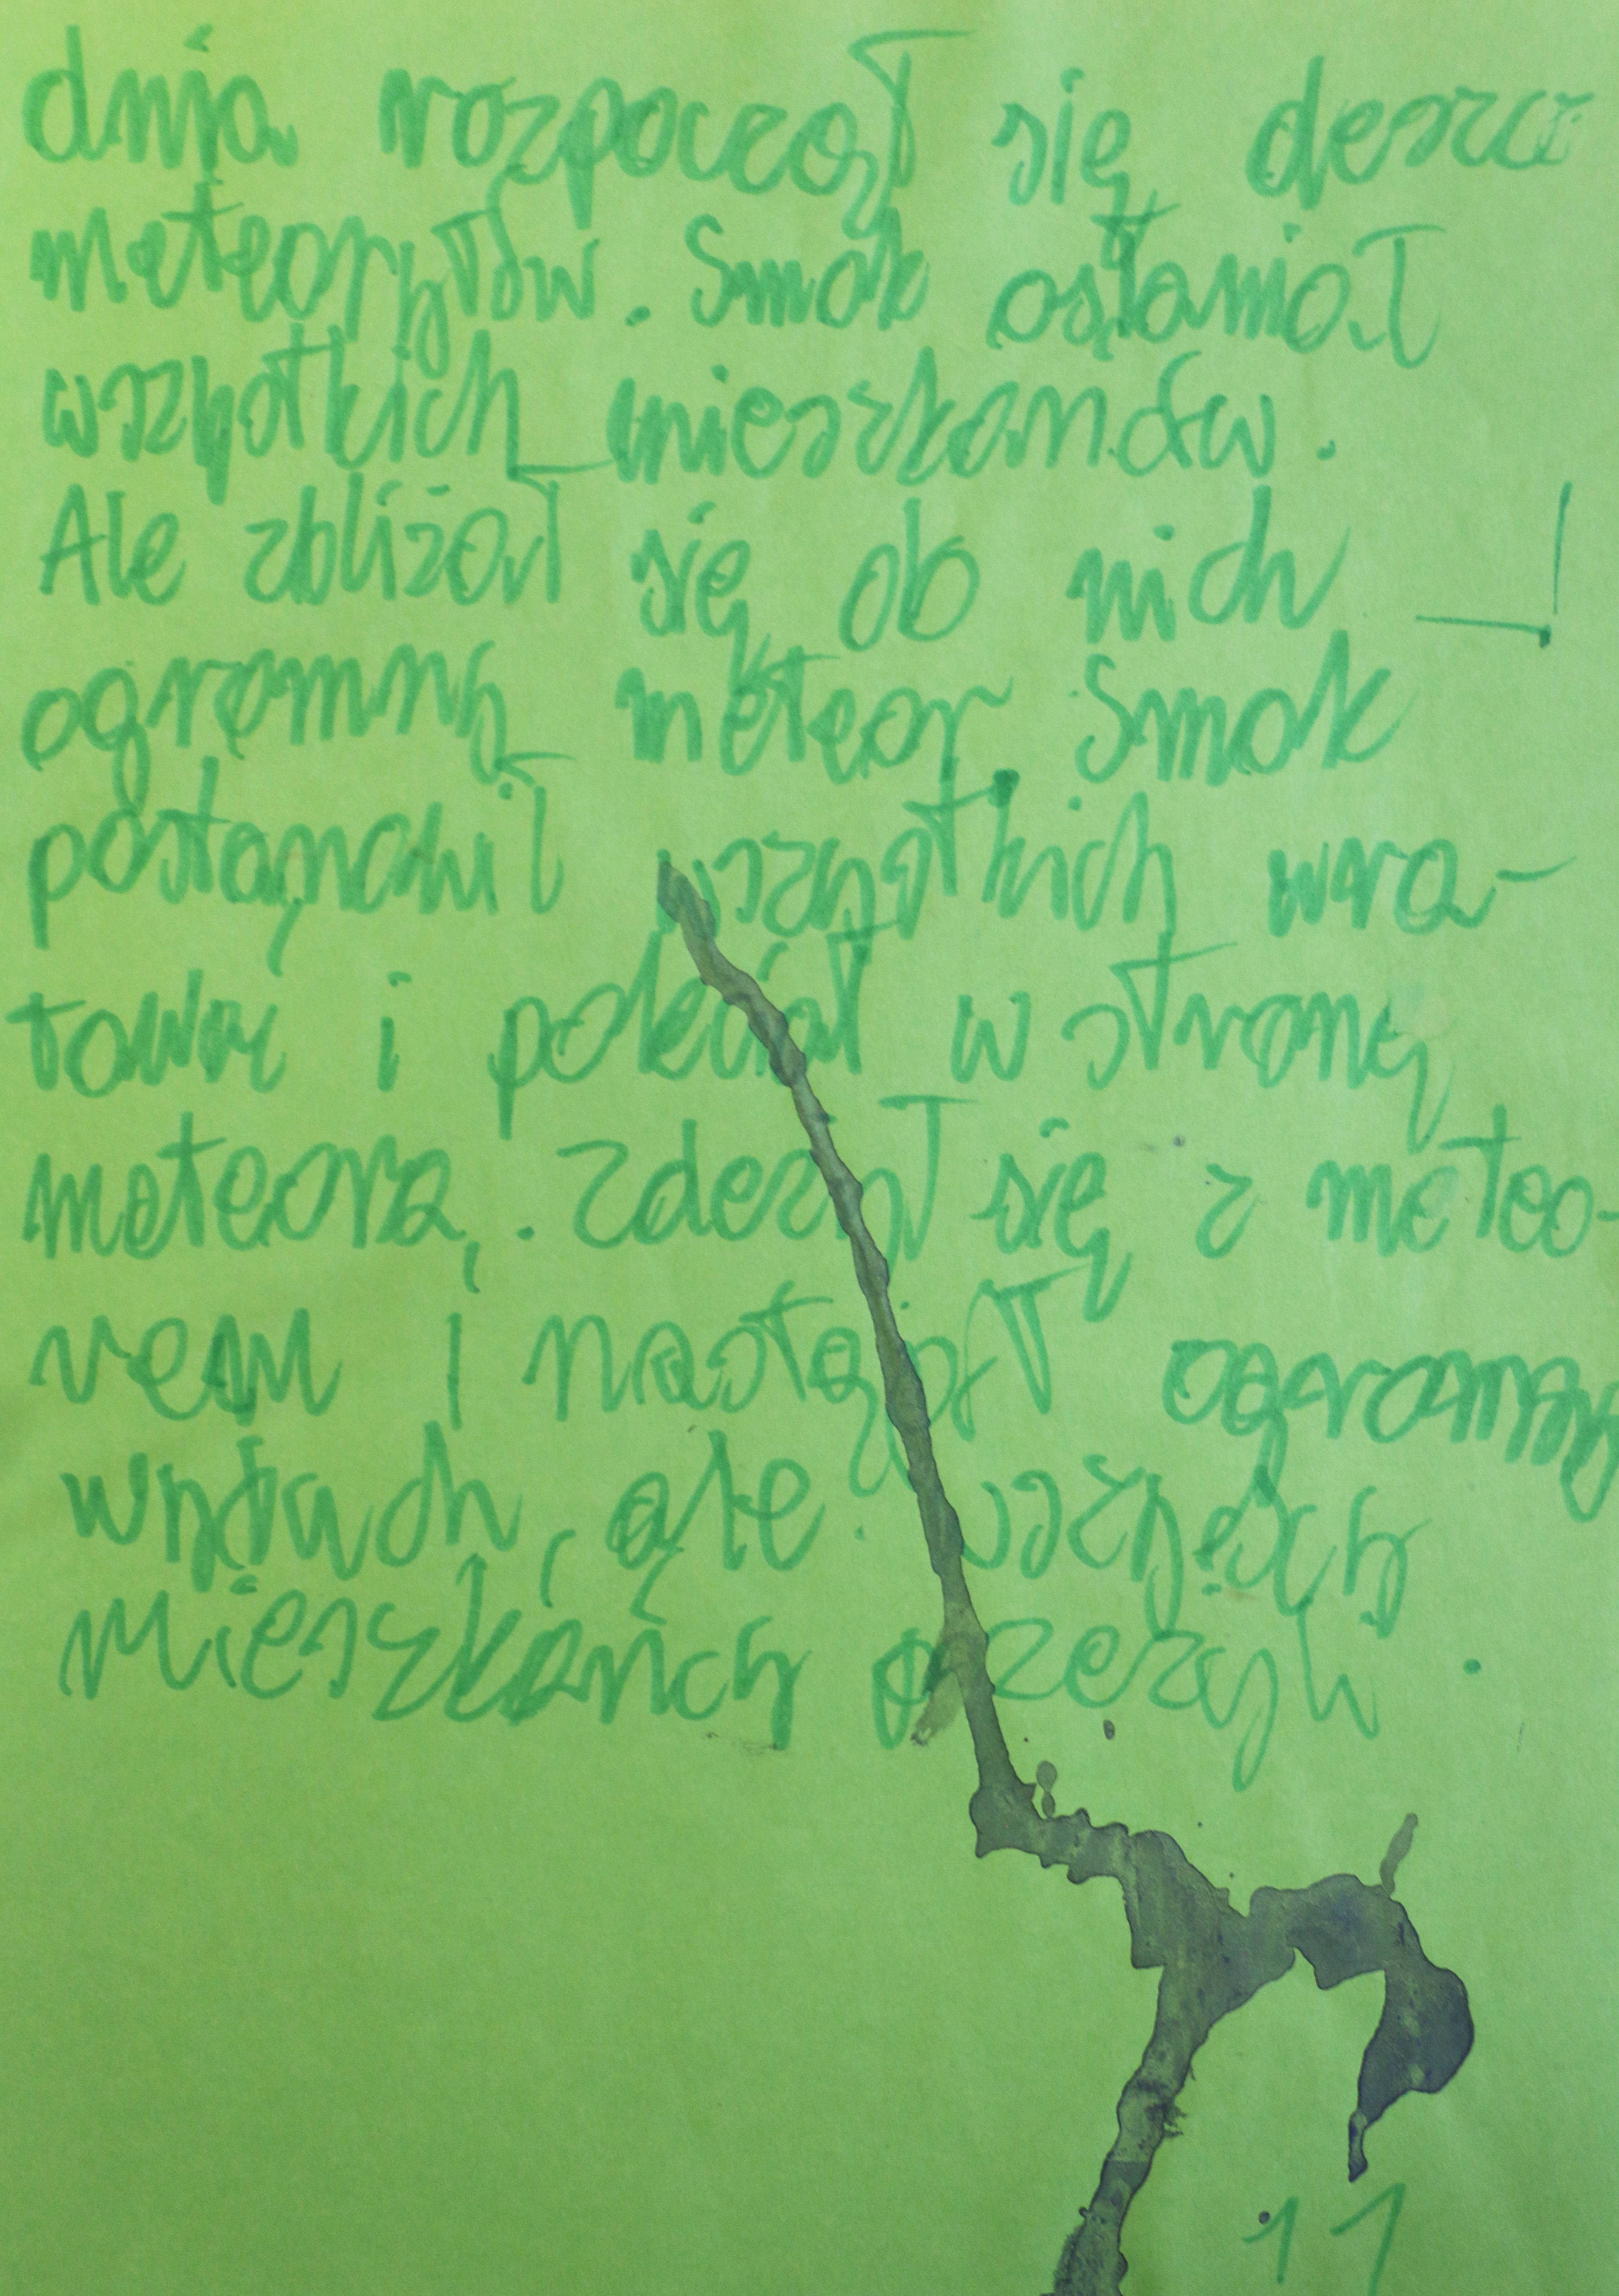 dnia rozpoczął się deszcz
meteorytów. Smok osłaniał
wszystkich mieszkanców.
Ale zbliżał się do nich
ogromny meteor. Smok
postanowił wszystkich ura-
tować i poleciał w stronę
meteora. Zderzył się z meteo-
rem i nastąpił ogromny
wybuch, ale wszyscy
mieszkańcy przeżyli.
11